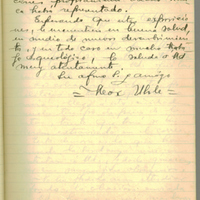 ca haya representado.
Esperando que esta exposicio
nes, le encuentren en buena salud,
en medio de nuevos descubrimien
tos, y en todo caso en mucho traba
jo arqueológico, le saluda a Ud
muy atentamente.
Su afmo S.S. y amigo
= Max Uhle =